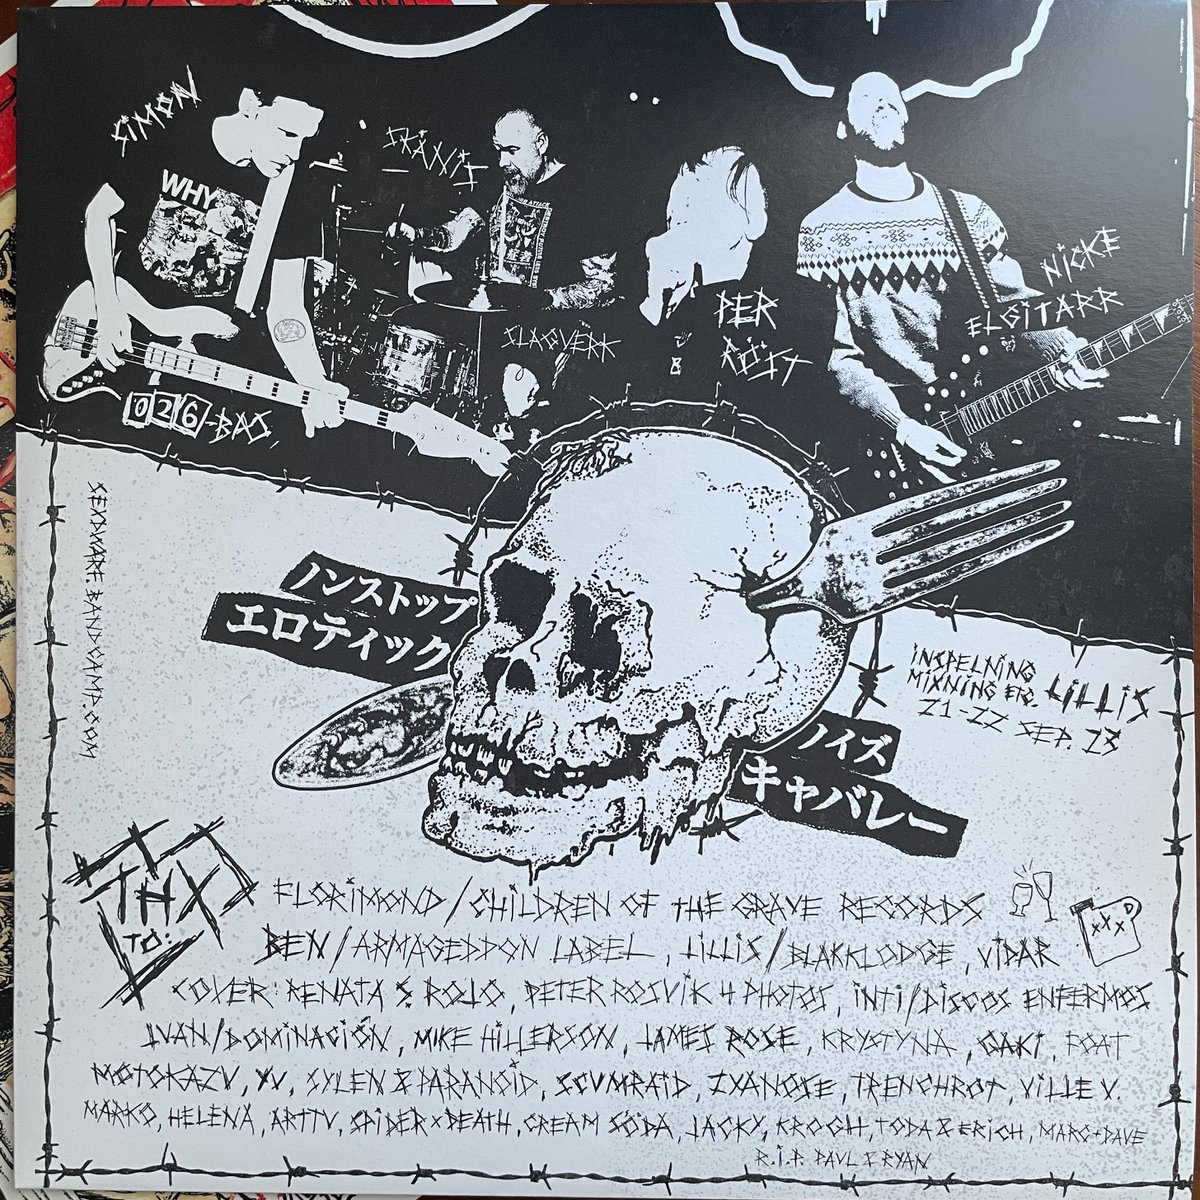 SIMON
WHY
026-BAS
SKÅNIS
SLAGVERK
PER
RÖST
NICKE
ELGITARR
SEXXXARE.BANDCAMP.COM
ノンストップ
エロティック
ノイズ
キャバレー
INSPELNING
MIXNING ETC. LILLIS
21-22 SEP. 23
THX
TO:
FLORIMOND/CHILDREN OF THE GRAVE RECORDS
BEN/ARMAGEDDON LABEL, LILLIS/BLAKKLODGE, VIDAR
XXX
COVER: RENATA S. ROJO, PETER ROSVIK 4 PHOTOS, INTI/DISCOS ENFERMOS
IVAN/DOMINACIÓN, MIKE HILLERSON, JAMES ROSE, KRYSTYNA, GAKI, FOAT
MOTOKAZU, YU, SYLEN & PARANOID, SCUMRAID, ZYANOSE, TRENCHROT, VILLE V.
MARKO, HELENA, ARTTU, SPIDER X DEATH, CREAM SÖDA, JACKY, KROGH, TODA & ERICH, MARC + DAVE
R.I.P. PAUL & RYAN